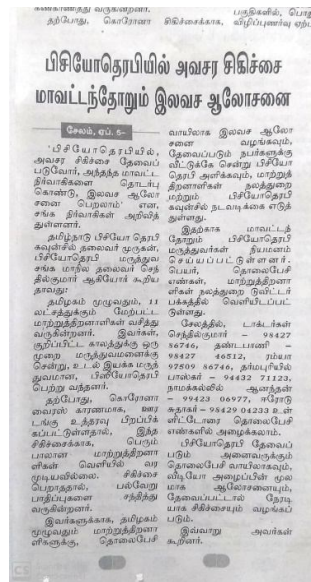 பிசியோதெரபியில் அவசர சிகிச்சை
மாவட்டந்தோறும் இலவச ஆலோசனை
சேலம், ஏப். 5–
'பிசியோதெரபியில்,
அவசர சிகிச்சை தேவைப்
படுவோர், அந்தந்த மாவட்ட
நிர்வாகிகளை தொடர்பு
கொண்டு, இலவச ஆலோ
சனை பெறலாம்' என,
சங்க நிர்வாகிகள் அறிவித்
துள்ளனர்.
தமிழ்நாடு பிசியோ தெரபி
கவுன்சில் தலைவர் முருகன்,
பிசியோதெரபி மருத்துவ
சங்க மாநில தலைவர் செந்
தில்குமார் ஆகியோர் கூறிய
தாவது:
தமிழகம் முழுவதும், 11
லட்சத்துக்கும் மேற்பட்ட
மாற்றுத்திறனாளிகள் வசித்து
வருகின்றனர். இவர்கள்,
குறிப்பிட்ட காலத்துக்கு ஒரு
முறை மருத்துவமனைக்கு
சென்று, உடல் இயக்க மருத்
துவமான, பிசியோதெரபி
பெற்று வந்தனர்.
தற்போது, கொரோனா
வைரஸ் காரணமாக, ஊர
டங்கு உத்தரவு பிறப்பிக்
கப்பட்டுள்ளதால், இந்த
சிகிச்சைக்காக, பெரும்
பாலான மாற்றுத்திறனா
ளிகள் வெளியில் வர
முடியவில்லை. சிகிச்சை
பெறாததால், பல்வேறு
பாதிப்புகளை சந்தித்து
வருகின்றனர்.
இவர்களுக்காக, தமிழகம்
முழுவதும் மாற்றுத்திறனா
ளிகளுக்கு, தொலைபேசி
வாயிலாக இலவச ஆலோ
சனை வழங்கவும்,
தேவைப்படும் நபர்களுக்கு
வீட்டுக்கே சென்று பிசியோ
தெரபி அளிக்கவும், மாற்றுத்
திறனாளிகள் நலத்துறை
மற்றும் பிசியோதெரபி
கவுன்சில் நடவடிக்கை எடுத்
துள்ளது.
இதற்காக மாவட்டந்
தோறும் பிசியோதெரபி
மருத்துவர்கள் நியமனம்
செய்யப்பட்டுள்ளனர்.
பெயர், தொலைபேசி
எண்கள், மாற்றுத்திறனா
ளிகள் நலத்துறை டுவிட்டர்
பக்கத்தில் வெளியிடப்பட்
டுள்ளது.
சேலத்தில், டாக்டர்கள்
செந்தில்குமார் – 98427
86746, தண்டபாணி –
98427 46512, ரம்யா
97509 86746, தர்மபுரியில்
பாஸ்கர் – 94432 71123,
நாமக்கல்லில் ஆனந்தன்
– 99423 06977, ஈரோடு
சுதாகர் – 98429 04233 உள்
ளிட்டோரை தொலைபேசி
எண்களில் அழைக்கலாம்.
பிசியோதெரபி தேவைப்
படும் அனைவருக்கும்
தொலைபேசி வாயிலாகவும்,
வீடியோ அழைப்பின் மூல
மாக ஆலோசனையும்,
தேவைப்பட்டால் நேரடி
யாக சிகிச்சையும் வழங்கப்
படும்.
இவ்வாறு அவர்கள்
கூறினர்.
CS